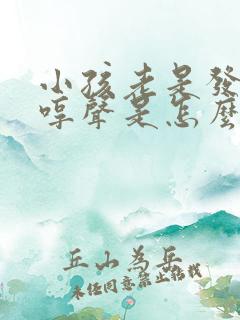 小孩老是發
哼聲是怎麼
丘山為岳
未經同意禁止轉載